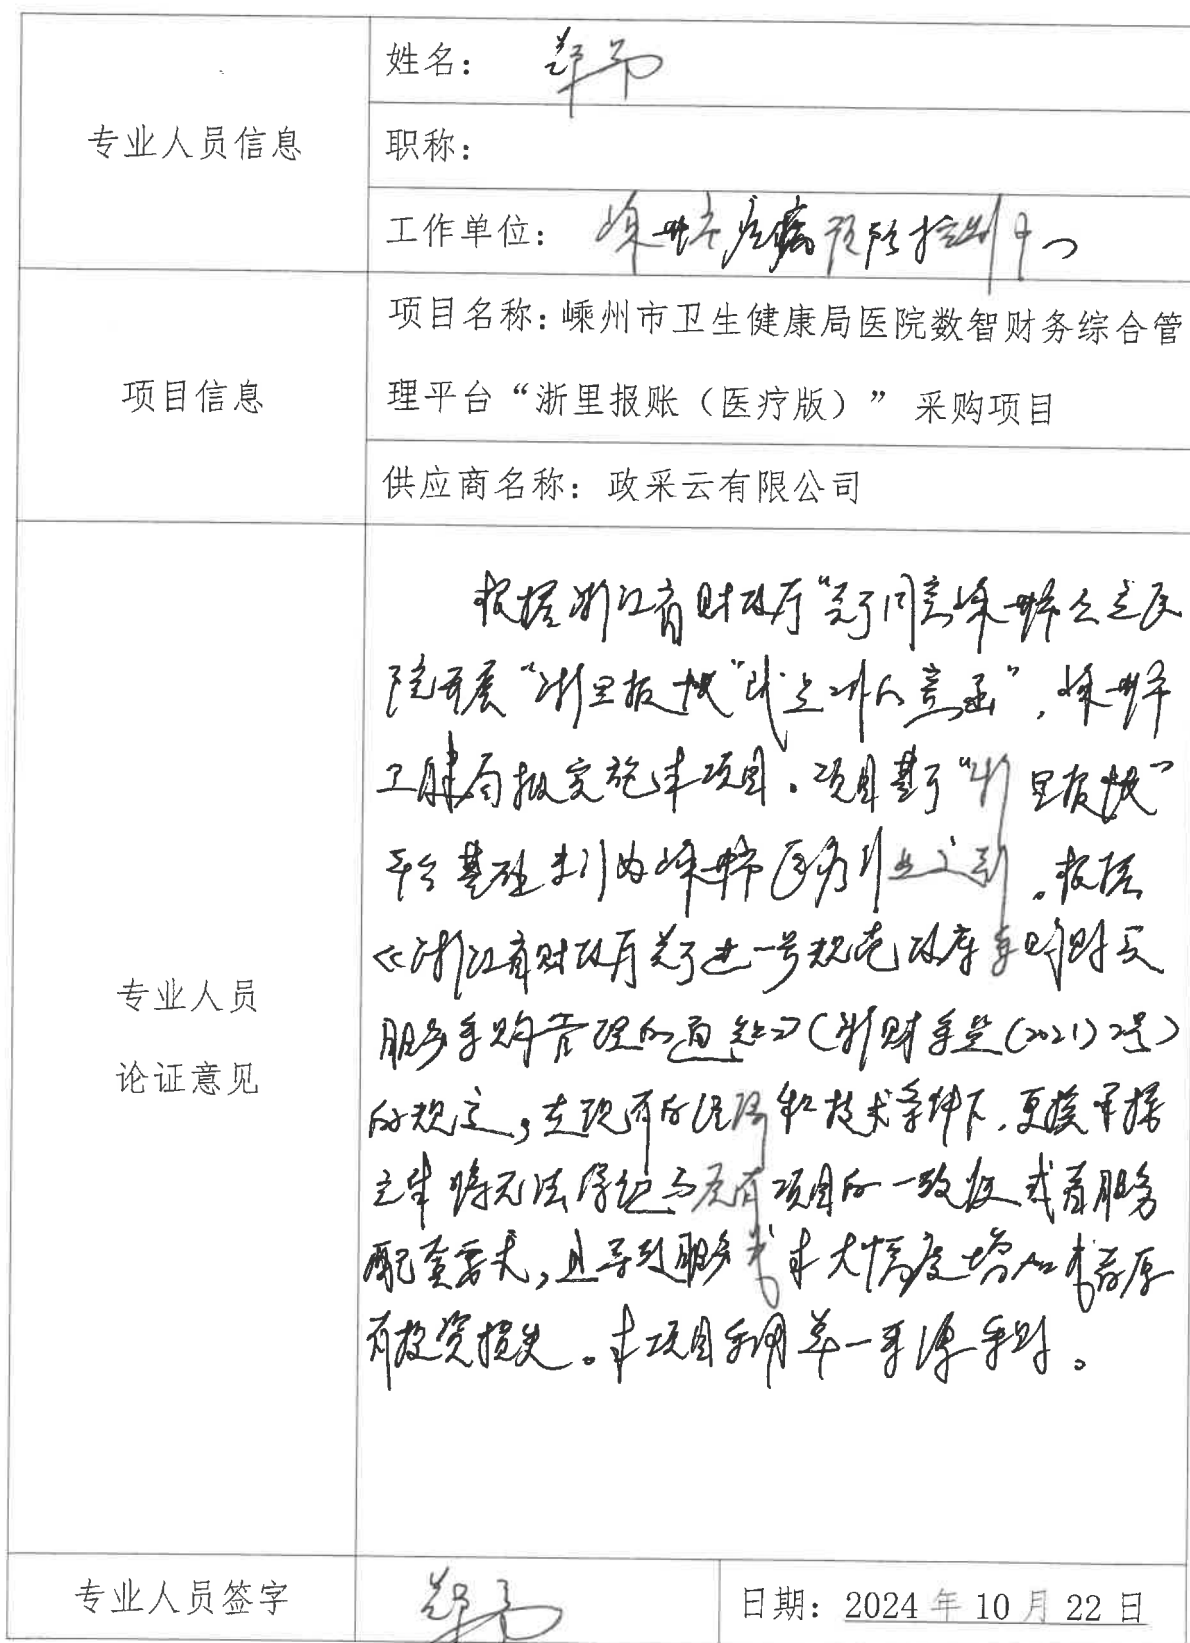 专业人员信息
姓名：
职称：
工作单位：嵊州市疾病预防控制中心
项目信息
项目名称：嵊州市卫生健康局医院数智财务综合管
理平台“浙里报账（医疗版）” 采购项目
供应商名称：政采云有限公司
专业人员
论证意见
根据浙江省财政厅“关于同意嵊州市公立医
院开展“浙里报账”试点工作的意函”，嵊州市
卫健局拟实施本项目。项目基于“浙里报账”
平台基础来行为嵊州市医疗行业定制。根据
《浙江省财政厅关于进一步规范政府采购财务
服务采购管理的通知》（浙财采监（2021）2号）
的规定，在现有的经济和技术条件下，更换采探
主体将无法保证与原有项目的一致性或者服务
配套要求，且导致服务成本大幅度增加或者原
有投资损失。本项目采用单一来源采购。
专业人员签字
日期：2024 年 10 月 22 日